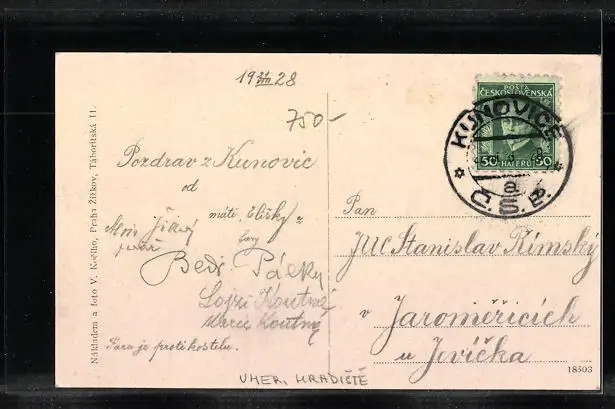 19 28
750-
Pozdrav z Kunovic
od
máti, Elišky z
Bedř. Pálky
Lojzi Koutná
Marie Koutná
Fara je proti kostelu.
UHER. HRADIŠTĚ
Nákladem a foto V. Koélho, Praha Žižkov, Táboritská 11.
POŠTA
ČESKOSLOVENSKÁ
50 HALÉŘŮ 50
KUNOVICE
a
Č.S.P.
Pan
JUC Stanislav Římský
v Jaroměřicích
u Jevíčka
18503